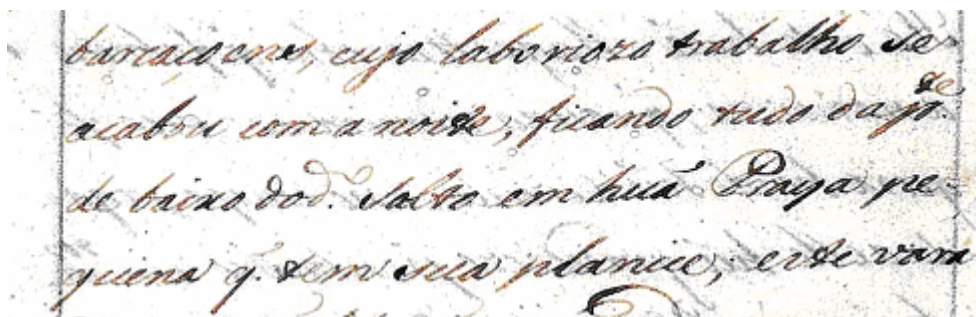 barcaçoens, cujo laboriozo trabalho se
acabou com a noite, ficando tudo da p.te
de baixo do d.o Salto em huã Praya pe-
quena q. tem sua planice; este vara